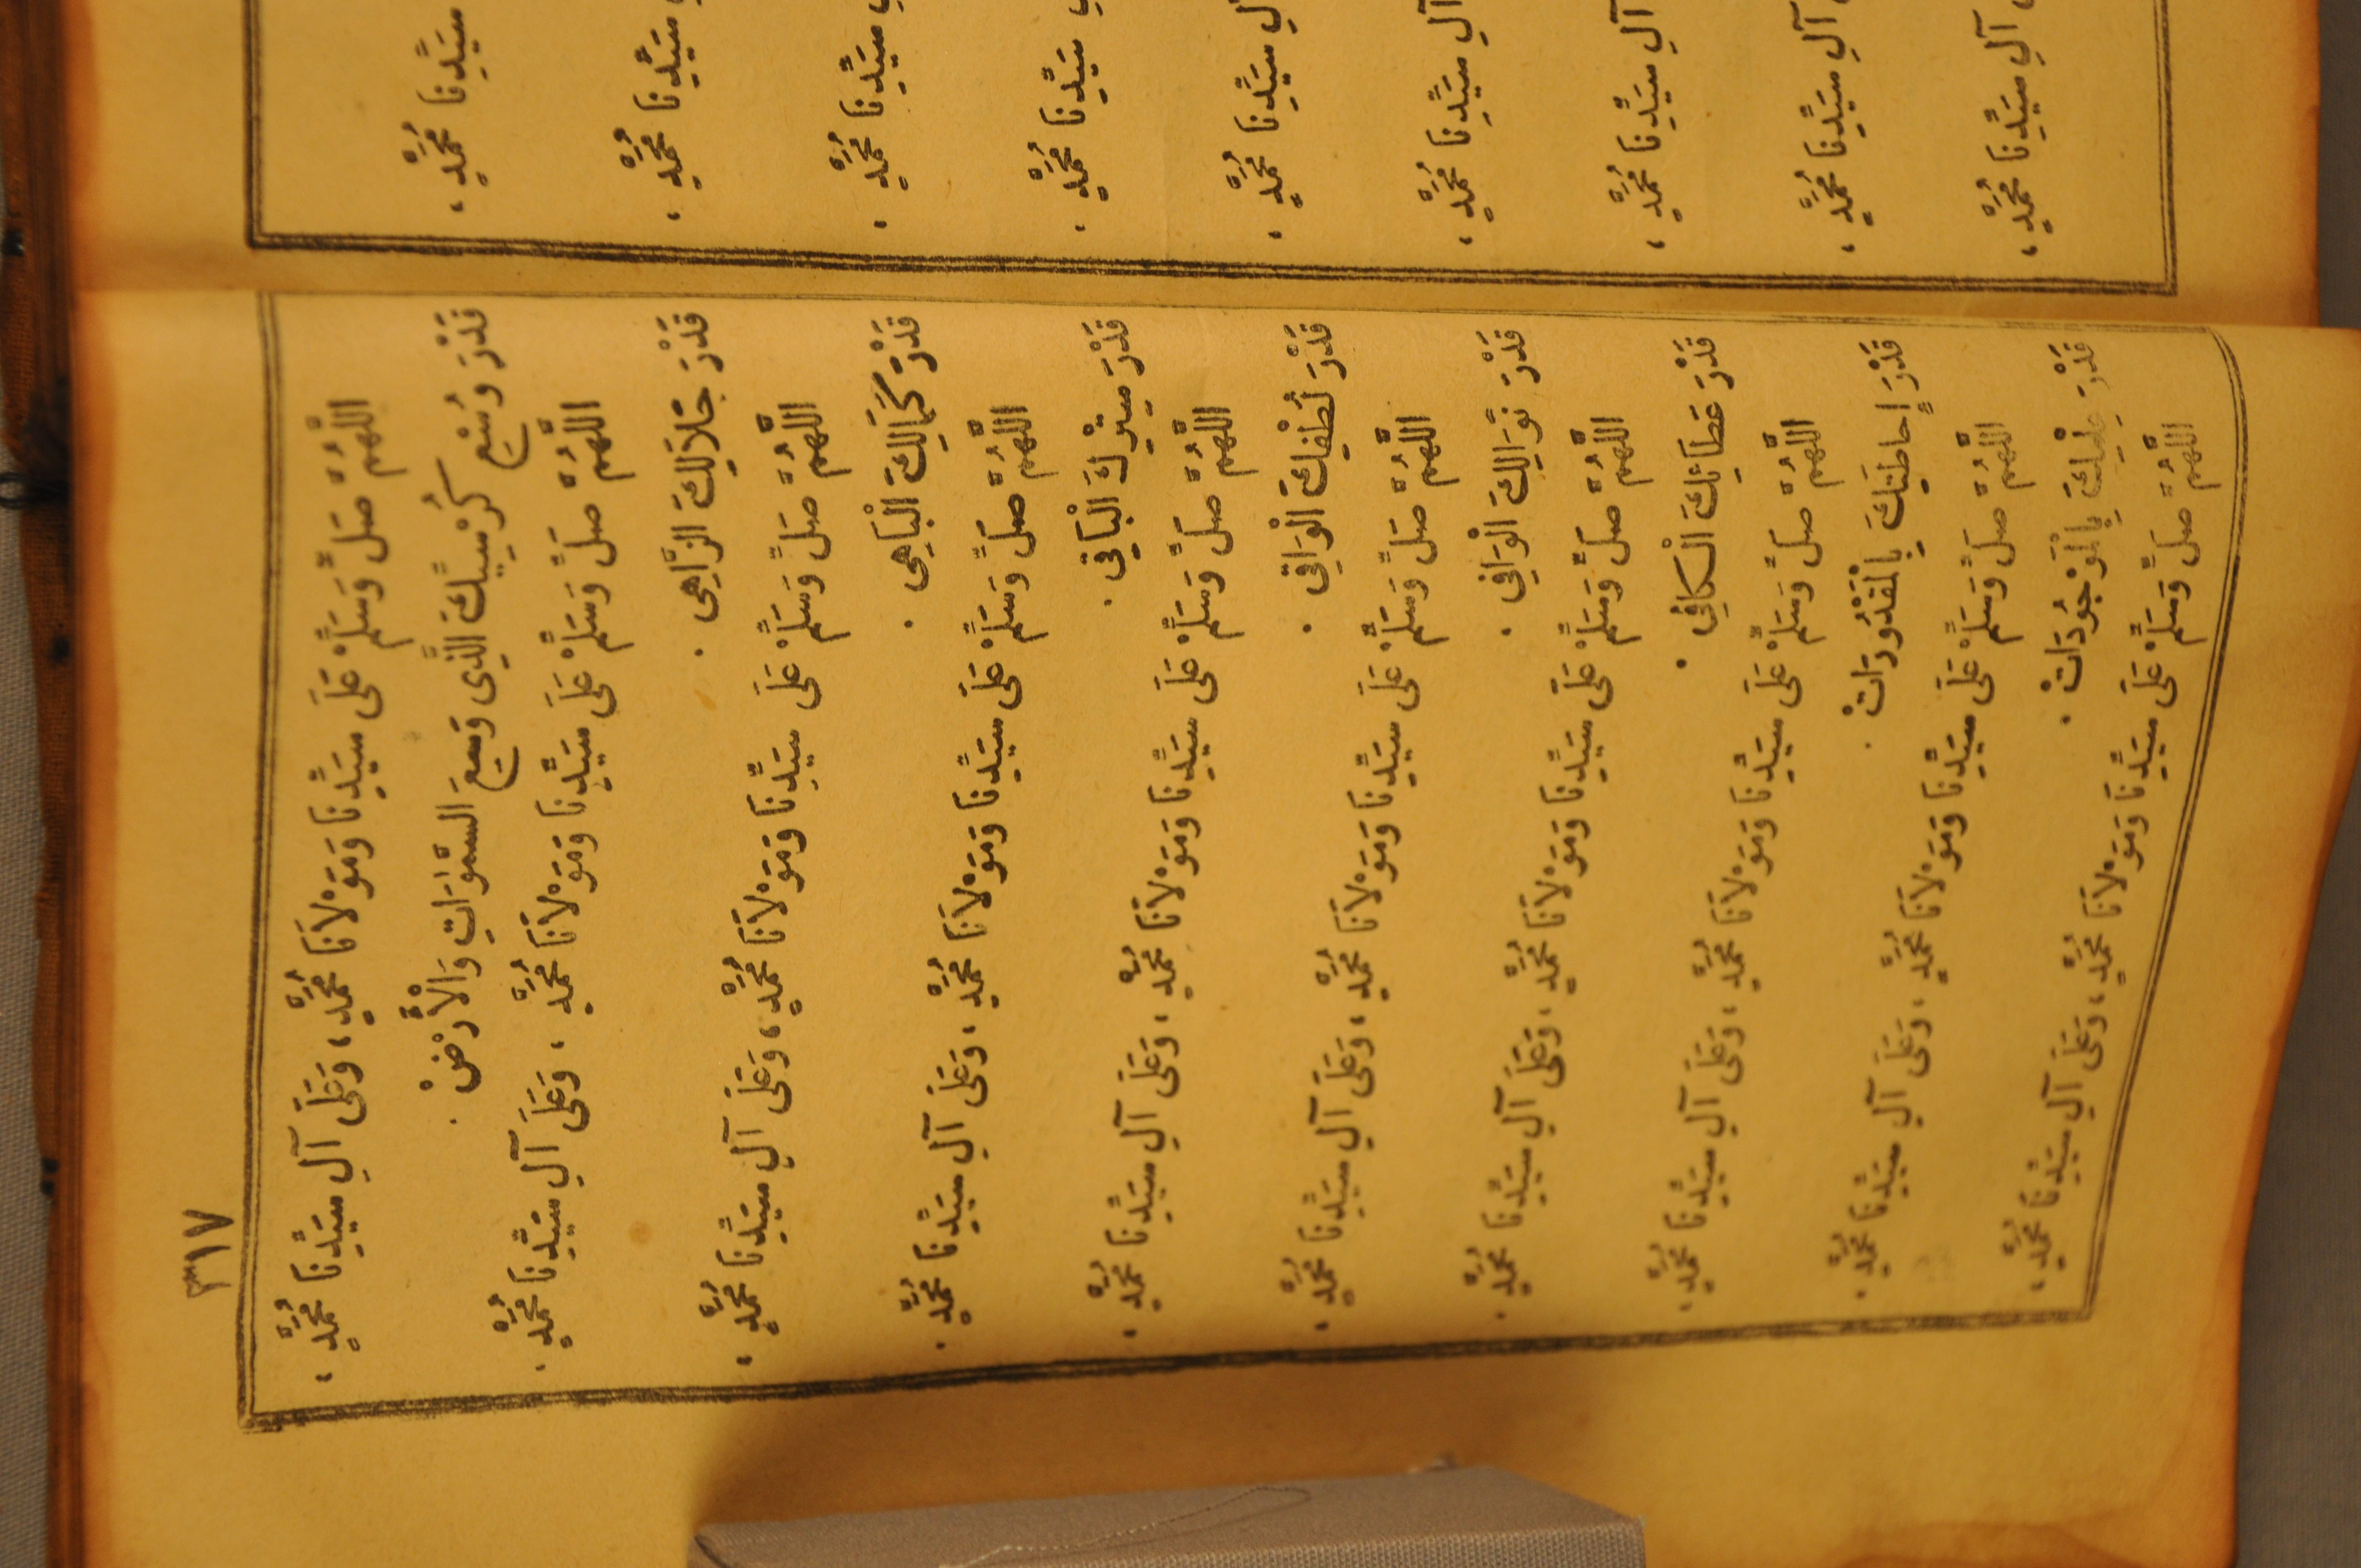 سَيِّدِنَا مُحَمَّدٍ،
سَيِّدِنَا مُحَمَّدٍ،
سَيِّدِنَا مُحَمَّدٍ،
سَيِّدِنَا مُحَمَّدٍ،
سَيِّدِنَا مُحَمَّدٍ،
آلِ سَيِّدِنَا مُحَمَّدٍ،
آلِ سَيِّدِنَا مُحَمَّدٍ،
آلِ سَيِّدِنَا مُحَمَّدٍ،
آلِ سَيِّدِنَا مُحَمَّدٍ،
٣١٧
اللَّهُمَّ صَلِّ وَسَلِّمْ عَلَى سَيِّدِنَا وَمَوْلَانَا مُحَمَّدٍ، وَعَلَى آلِ سَيِّدِنَا مُحَمَّدٍ،
قَدْرَ وُسْعِ كُرْسِيِّكَ الَّذِى وَسِعَ السَّمٰوَاتِ وَالْأَرْضْ.
اللَّهُمَّ صَلِّ وَسَلِّمْ عَلَى سَيِّدِنَا وَمَوْلَانَا مُحَمَّدٍ، وَعَلَى آلِ سَيِّدِنَا مُحَمَّدٍ،
قَدْرَ جَلَالِكَ الزَّاهِى.
اللَّهُمَّ صَلِّ وَسَلِّمْ عَلَى سَيِّدِنَا وَمَوْلَانَا مُحَمَّدٍ، وَعَلَى آلِ سَيِّدِنَا مُحَمَّدٍ،
قَدْرَ كَمَالِكَ الْبَاهِى.
اللَّهُمَّ صَلِّ وَسَلِّمْ عَلَى سَيِّدِنَا وَمَوْلَانَا مُحَمَّدٍ، وَعَلَى آلِ سَيِّدِنَا مُحَمَّدٍ،
قَدْرَ سِتْرِكَ الْبَاقِي.
اللَّهُمَّ صَلِّ وَسَلِّمْ عَلَى سَيِّدِنَا وَمَوْلَانَا مُحَمَّدٍ، وَعَلَى آلِ سَيِّدِنَا مُحَمَّدٍ،
قَدْرَ لُطْفِكَ الْوَاقِي.
اللَّهُمَّ صَلِّ وَسَلِّمْ عَلَى سَيِّدِنَا وَمَوْلَانَا مُحَمَّدٍ، وَعَلَى آلِ سَيِّدِنَا مُحَمَّدٍ،
قَدْرَ نَوَالِكَ الْوَافِي.
اللَّهُمَّ صَلِّ وَسَلِّمْ عَلَى سَيِّدِنَا وَمَوْلَانَا مُحَمَّدٍ، وَعَلَى آلِ سَيِّدِنَا مُحَمَّدٍ،
قَدْرَ عَطَائِكَ الْكَافِي.
اللَّهُمَّ صَلِّ وَسَلِّمْ عَلَى سَيِّدِنَا وَمَوْلَانَا مُحَمَّدٍ، وَعَلَى آلِ سَيِّدِنَا مُحَمَّدٍ،
قَدْرَ إِحَاطَتِكَ بِالْمَقْدُورَاتْ.
اللَّهُمَّ صَلِّ وَسَلِّمْ عَلَى سَيِّدِنَا وَمَوْلَانَا مُحَمَّدٍ، وَعَلَى آلِ سَيِّدِنَا مُحَمَّدٍ،
قَدْرَ عِلْمِكَ بِالْمَوْجُودَاتْ.
اللَّهُمَّ صَلِّ وَسَلِّمْ عَلَى سَيِّدِنَا وَمَوْلَانَا مُحَمَّدٍ، وَعَلَى آلِ سَيِّدِنَا مُحَمَّدٍ،